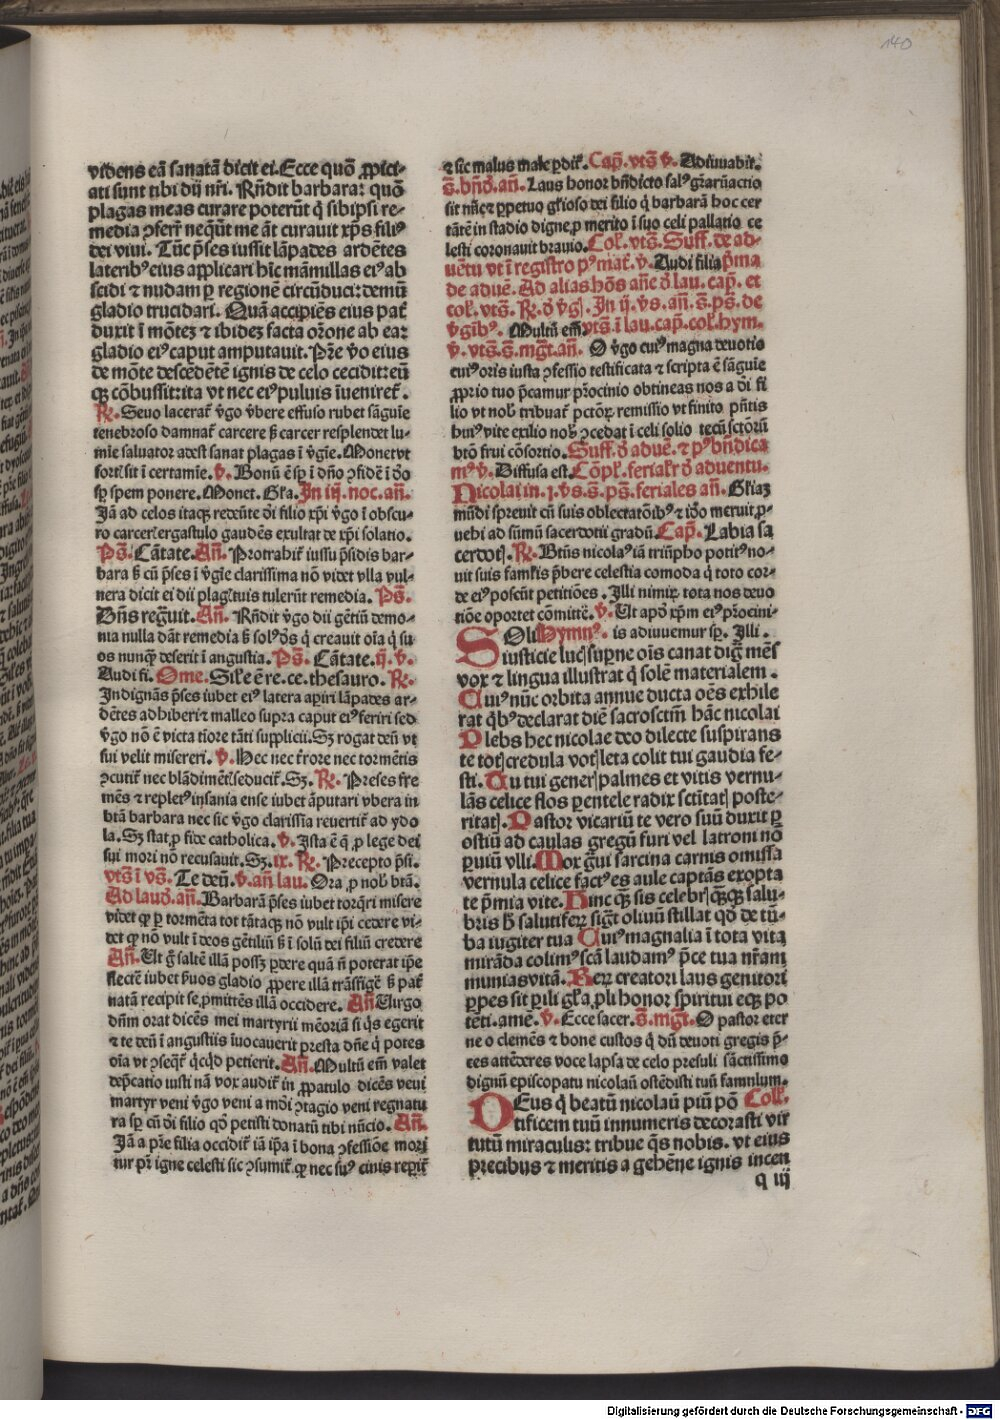 140
videns eā sanatā dicit ei. Ecce quō ꝓpici-
ati sunt tibi dij nr̄i. Rn̄dit barbara: quō
plagas meas curare poterūt q̇ sibipsi re-
media ꝯferr̄ neq̄ūt me āt curauit xp̄s fili⁹
dei viui. Tūc p̄ses iussit lāpades ardētes
laterib⁹ eius applicari hīc māmillas ei⁹ ab
scidi ⁊ nudam ꝑ regionē circūduci: demū
gladio trucidari. Quā accipiēs eius pat̄
duxit ī mōtē⁊ ⁊ ibidē⁊ facta or̄one ab ea⁊
gladio ei⁹ caput amputauit. Pr̄e v̊o eius
de mōte descēdēte ignis de celo cecidit: eū
qꝫ cōbussit: ita vt nec ei⁹ puluis īueniret̄.
R̄. Seuo lacerat̄ v̊go v̊bere effuso rubet sāguīe
tenebroso damnat̄ carcere s̄ carcer resplendet lu-
mīe saluator adest sanat plagas ī v̊gīe. Monet vt
fort̄ sit ī certamīe. v̄. Bonū ē sp̄ ī dn̄o ꝯfidē ī dō
sp̄ spem ponere. Monet. Gl̄a. In iij. noc. an̄.
Jā ad celos itaqꝫ redeūte di filio xp̄i v̊go ī obscu-
ro carcer̄ ergastulo gaudēs exultat de xp̄i solatio.
Ps̄. Cātate. An̄. Protrahit̄ iussu p̄sidis bar-
bara s̄ cū p̄ses ī v̊gīe clarissima nō videt vlla vul-
nera dicit ei dii plaḡ tuis tulerūt remedia. Ps̄.
Dn̄s regn̄uit. An̄. Rn̄dit v̊go dii gētiū demo-
nia nulla dāt remedia s̄ sol⁹ ds̄ q̇ creauit oīa q̇ su-
os nunqꝫ deserit ī angustia. Ps̄. Cātate. ij. v̄.
Audi fi. Ome. Sil̄e ē re. ce. thesauro. R̄.
Indignās p̄ses iubet ei⁹ latera apiri lāpades ar-
dētes adhiberi ⁊ malleo supra caput ei⁹ feriri sed
v̊go nō ē victa tīore tāti supplicii. Sꝫ rogat deū vt
sui velit misereri. v̄. Hec nec t̄rore nec tormētis
ꝯcutit̄ nec blādimēt̄ seducit̄. Sꝫ. R̄. Preses fre
mēs ⁊ replet⁹ insania ense iubet āputari vbera in
btā barbara nec sic v̊go clarissīa reuertit̄ ad ydo
la. Sꝫ stat ꝓ fide catholica. v̄. Ista ē q̄ ꝓ lege dei
sui mori nō recusauit. Sꝫ. ix. R̄. Precepto p̄si.
vts̄ ī vs̄. Te deū. v̄. an̄ lau. Ora ꝓ nob̄ btā.
Ad laud. an̄. Barbarā p̄ses iubet torq̄ri misere
videt qꝫ ꝑ tormēta tot tātaqꝫ nō vult ip̄i cedere vi-
det qꝫ nō vult ī deos gētiliū s̄ ī solū dei filiū credere
An̄. Ut ḡ saltē illā possꝫ ꝑdere quā n̄ poterat ip̄e
flectē iubet p̄uos gladio ꝓpere illā trāsfigē s̄ pat̄
natā recipit se ꝓmittēs illā occidere. An̄ Uirgo
dn̄m orat dicēs mei martyrii mēoriā si q̇s egerit
⁊ te deū ī angustiis īuocauerit presta dn̄e q̇ potes
oīa vt ꝯseq̄t̄ q̇cqd̄ petierit. An̄. Multū em̄ valet
dep̄catio iusti nā vox audit̄ in ꝓpatulo dicēs veni
martyr veni v̊go veni a mōi ꝯtagio veni regnatu
ra sꝑ cū di filio qd̄ petisti donatū tibi nūcio. An̄.
Jā a pr̄e filia occidit̄ iā ip̄a ī bona ꝯfessiōe mori
tur pr̄ igne celesti sic ꝯsumit̄ qꝫ nec su⁹ cinis reꝑit̄
⁊ sic malus male ꝑdit̄. Cap̄. vts̄ v̄. Adiuuabit̄.
s̄. bn̄d. an̄. Laus honor bn̄dicto sal⁹ gr̄arū actio
sit nūc ⁊ ꝑpetuo gl̄ioso dei filio q̇ barbarā hoc cer
tātē in stadio digne ꝓ merito ī suo celi pallatio ce
lesti coronauit brauio. Col̄. vts̄. Suff. de ad-
uētu vt ī registro p⁹ mat̄. v̄. Audi filia p̄ma
de aduē. Ad alias hōs an̄e d̄ lau. cap̄. et
col̄. vts̄. R̄. d̄ v̊g. In ij. vs. an̄. s̄. ps̄. de
v̊gīb⁹. Multū em̄ vts̄ ī lau. cap̄. col̄. hym.
v̄. vts̄. s̄. mgt̄. an̄. O v̊go cui⁹ magna deuotio
cui⁹ oris iusta ꝯfessio testificata ⁊ scripta ē sāguīe
ꝓprio tuo p̄camur p̄rocinio obtineas nos a di fi
lio vt nob̄ tribuat̄ pctōꝝ remissio vt finito p̄ntis
hui⁹ vite exilio nob̄ ꝯcedat̄ ī celi solio tecū sctōrū
btō frui cōsortio. Suff. d̄ aduē. ⁊ p⁹ bn̄dica
m⁹ v̄. Diffusa est. Cōpl̄. ferial̄r d̄ aduentu.
Nicolai in .1. vs. s̄. ps̄. feriales an̄. Gl̄iaꝫ
mūdi spreuit cū suis oblectatōib⁹ ⁊ iō meruit ꝓ-
uehi ad sūmū sacerdotii gradū. Cap̄. Labia sa
cerdot̄. R̄. Btūs nicola⁹ iā triūpho potit⁹ no-
uit suis famłis p̄bere celestia comoda q̇ toto cor-
de ei⁹ poscūt petitiōes. Illi nimiꝝ tota nos deuo
tiōe oportet cōmittē. v̄. Ut apd̄ xp̄m ei⁹ p̄rocini-
SOli Hymn⁹. is adiuuemur sꝑ. Illi.
iusticie luc̄ supne oīs canat digꝫ mēs
vox ⁊ lingua illustrat q̇ solē materialem.
Cui⁹ nūc orbita annue ducta oēs exhile
rat q̇b⁹ declarat diē sacrosctm̄ hāc nicolai
Plebs hec nicolae deo dilecte suspirans
te tot̄ credula vot̄ leta colit tui gaudia fe-
sti. Tu tui gener̄ palmes et vitis vernu-
lās celice flos ꝑentele radix sctitat̄ poste-
ritat̄. Pastor vicariū te vero suū duxit ꝑ
ostiū ad caulas gregū furi vel latroni nō
ꝑuiū vlli. Mox q̄ui sarcina carnis omissa
vernula celice fact⁹ es aule captās exopta
te p̄mia vite. Hinc qꝫ sis celebr̄ qꝫqꝫ salu-
bris h̄ salutifeꝝ sigt̄ oliuū stillat qd̄ de tū-
ba iugiter tua Cui⁹ magnalia ī tota vita
mirāda colim⁹ scā laudam⁹ p̄ce tua nr̄am
munias vitā. Reꝝ creatori laus genitori
ꝑpes sit ꝑili gl̄a pli honor spiritui ecqꝫ po
tēti. amē. v̄. Ecce sacer. s̄. mgt̄. O pastor eter
ne o clemēs ⁊ bone custos q̇ dū deuoti gregis p̄-
ces attēderes voce lapsa de celo presuli sāctissimo
dignū episcopatu nicolaū ostēdisti tuū famulum.
DEus q̇ beatū nicolaū piū pō Coll̄.
tificem tuū innumeris decorasti vir
tutū miraculis: tribue q̄s nobis. vt eius
precibus ⁊ meritis a gehēne ignis incen
q iij
Digitalisierung gefördert durch die Deutsche Forschungsgemeinschaft - DFG